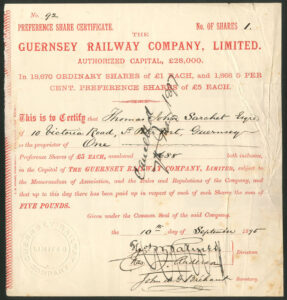 No. 92
PREFERENCE SHARE CERTIFICATE. No. OF SHARES 1.
THE
GUERNSEY RAILWAY COMPANY, LIMITED.
AUTHORIZED CAPITAL, £28,000.
IN 18,670 ORDINARY SHARES OF £1 EACH, AND 1,866 5 PER
CENT. PREFERENCE SHARES OF £5 EACH.
This is to Certify that Thomas John Esqre.
of 10 Victoria Road, St. Port, Guernsey
is the proprietor of One
Preference Shares of £5 each, numbered both inclusive,
in the Capital of THE GUERNSEY RAILWAY COMPANY, LIMITED, subject to
the Memorandum of Association, and the Rules and Regulations of the Company, and
that up to this day there has been paid up in respect of each of such Shares the sum of
FIVE POUNDS.
Given under the Common Seal of the said Company.
the 10th day of September
Directors
Secretary.
LIMITED